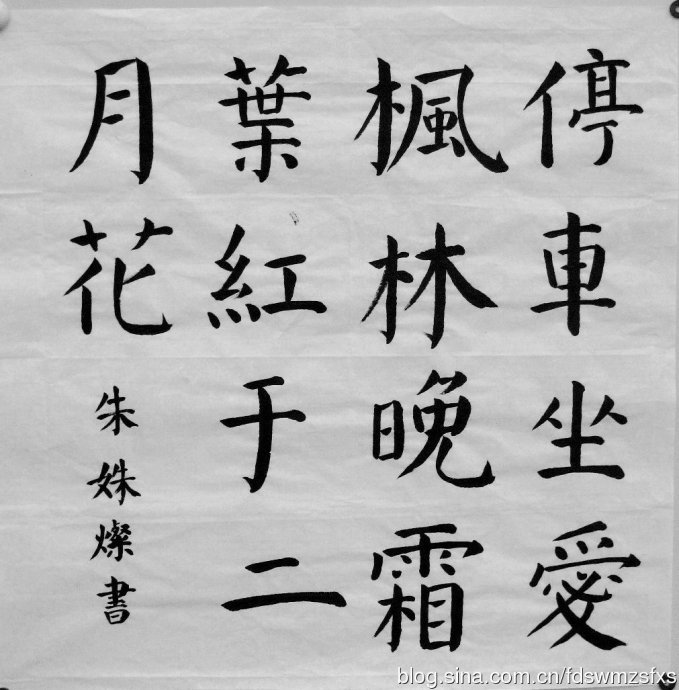 停車坐愛
楓林晚霜
葉紅于二
月花
朱姝燦書
blog.sina.com.cn/fdswmzsfxs